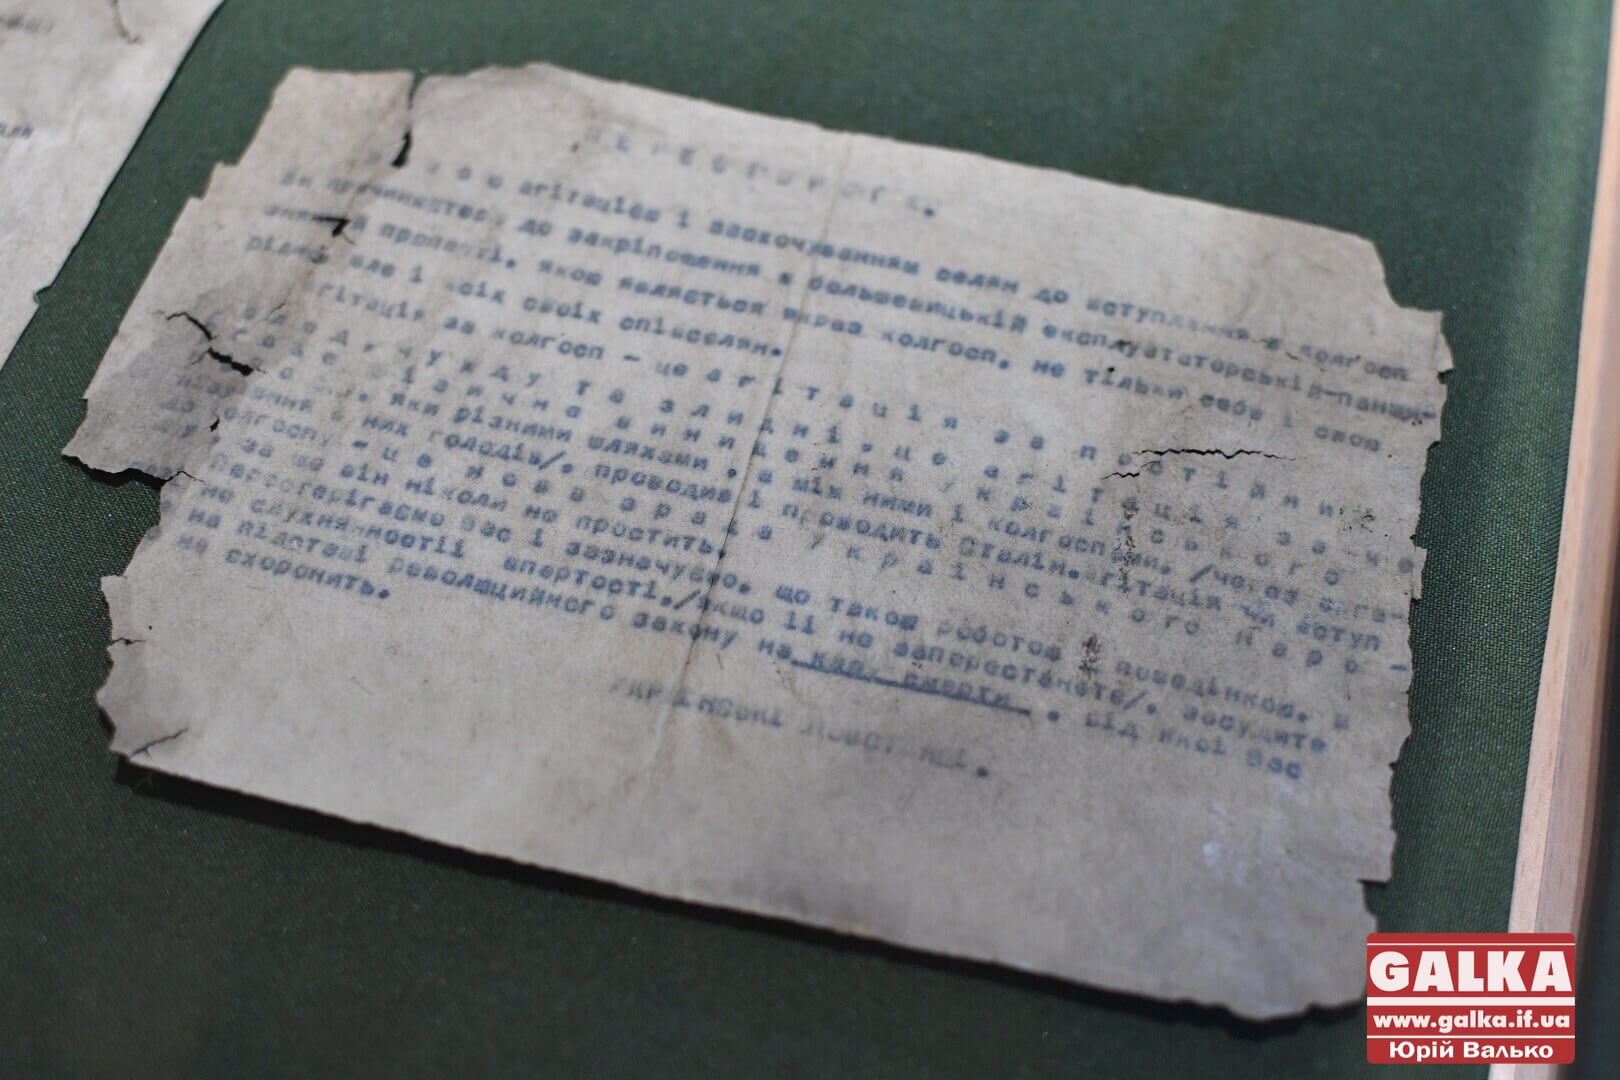 для
ПЕРЕСТОРОГА.
агітацією і заохочуванням селян до вступлення в колгосп
Ви причиняєтесь до закріпощення в большевицькій експлуататорській-панщи-
пропасті, якою являється якраз колгосп, не тільки себе і свою
рідню, але і всіх своїх співселян.
Агітація за колгосп - це а г і т а ц і я  з а  п о с т і й н и
г о л о д, н у ж д у  т а  з л и д н і, ц е  а г і т а ц і я  з а
ф і з и ч н е  в и н и щ е н н я  у к р а ї н с ь к о г о
яки різними шляхами, а між ними і колгоспами, /через
в них голодів/, проводив і проводить Сталін. Агітація за вступ
до колгоспу - ц е  н о в а  з р а д а  У к р а ї н с ь к о г о  н а р о -
д у, за що він ніколи не простить.
Перестерігаємо Вас і зазначуємо, що такою роботою і поведінкою, в
не слухняностії впертості,/якщо її не заперестанете/, засудите
на підставі революційного закону на кару смерти, від якої Вас
не схоронить.
УКРАЇНСЬКІ ПОВСТАНЦІ.
GALKA
www.galka.if.ua
Юрій Валько